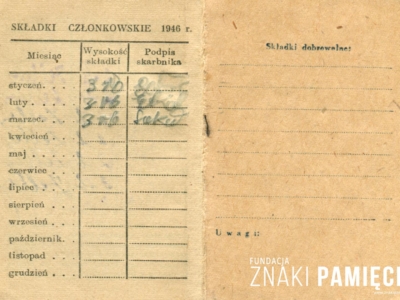 SKŁADKI CZŁONKOWSKIE 1946 r.
Miesiąc
Wysokość składki
Podpis skarbnika
styczeń . . . 3
luty . . . . 3
marzec. . . . 3
kwiecień . .
maj . . . .
czerwiec . .
lipiec . . .
sierpień
wrzesień .
październik.
listopad
grudzień .
Składki dobrowolne:
Uwagi:
FUNDACJA
ZNAKI PAMIĘCI